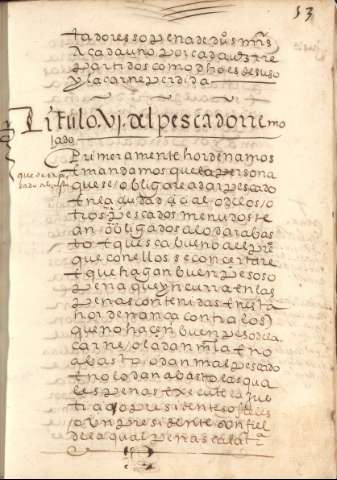 53
tadores so pena de dos mill mrs
A cada uno por cada vez re
partidos como dho es de suso
y la carne perdida
Titulo Vj. del pescador remo
lado
Primeramente hordenamos
t mandamos que la persona
que se obligare a dar pescado
t'nesta ciudad
trios pescados menudos se
an obligados a lo dar abas
to t que sea bueno al preº
que con ellos se concertare
t que hagan buen peso so
pena que yncurra en las
penas contenidas t'nesta
hordenança contra los
que no hacen buen peso de la
carne / o la dan mala t no
abasto / o dan mal pescado
t no lo dan abasto las qua
les penas execute la jus
tiª
o un presidente con fiel
de la qual pena